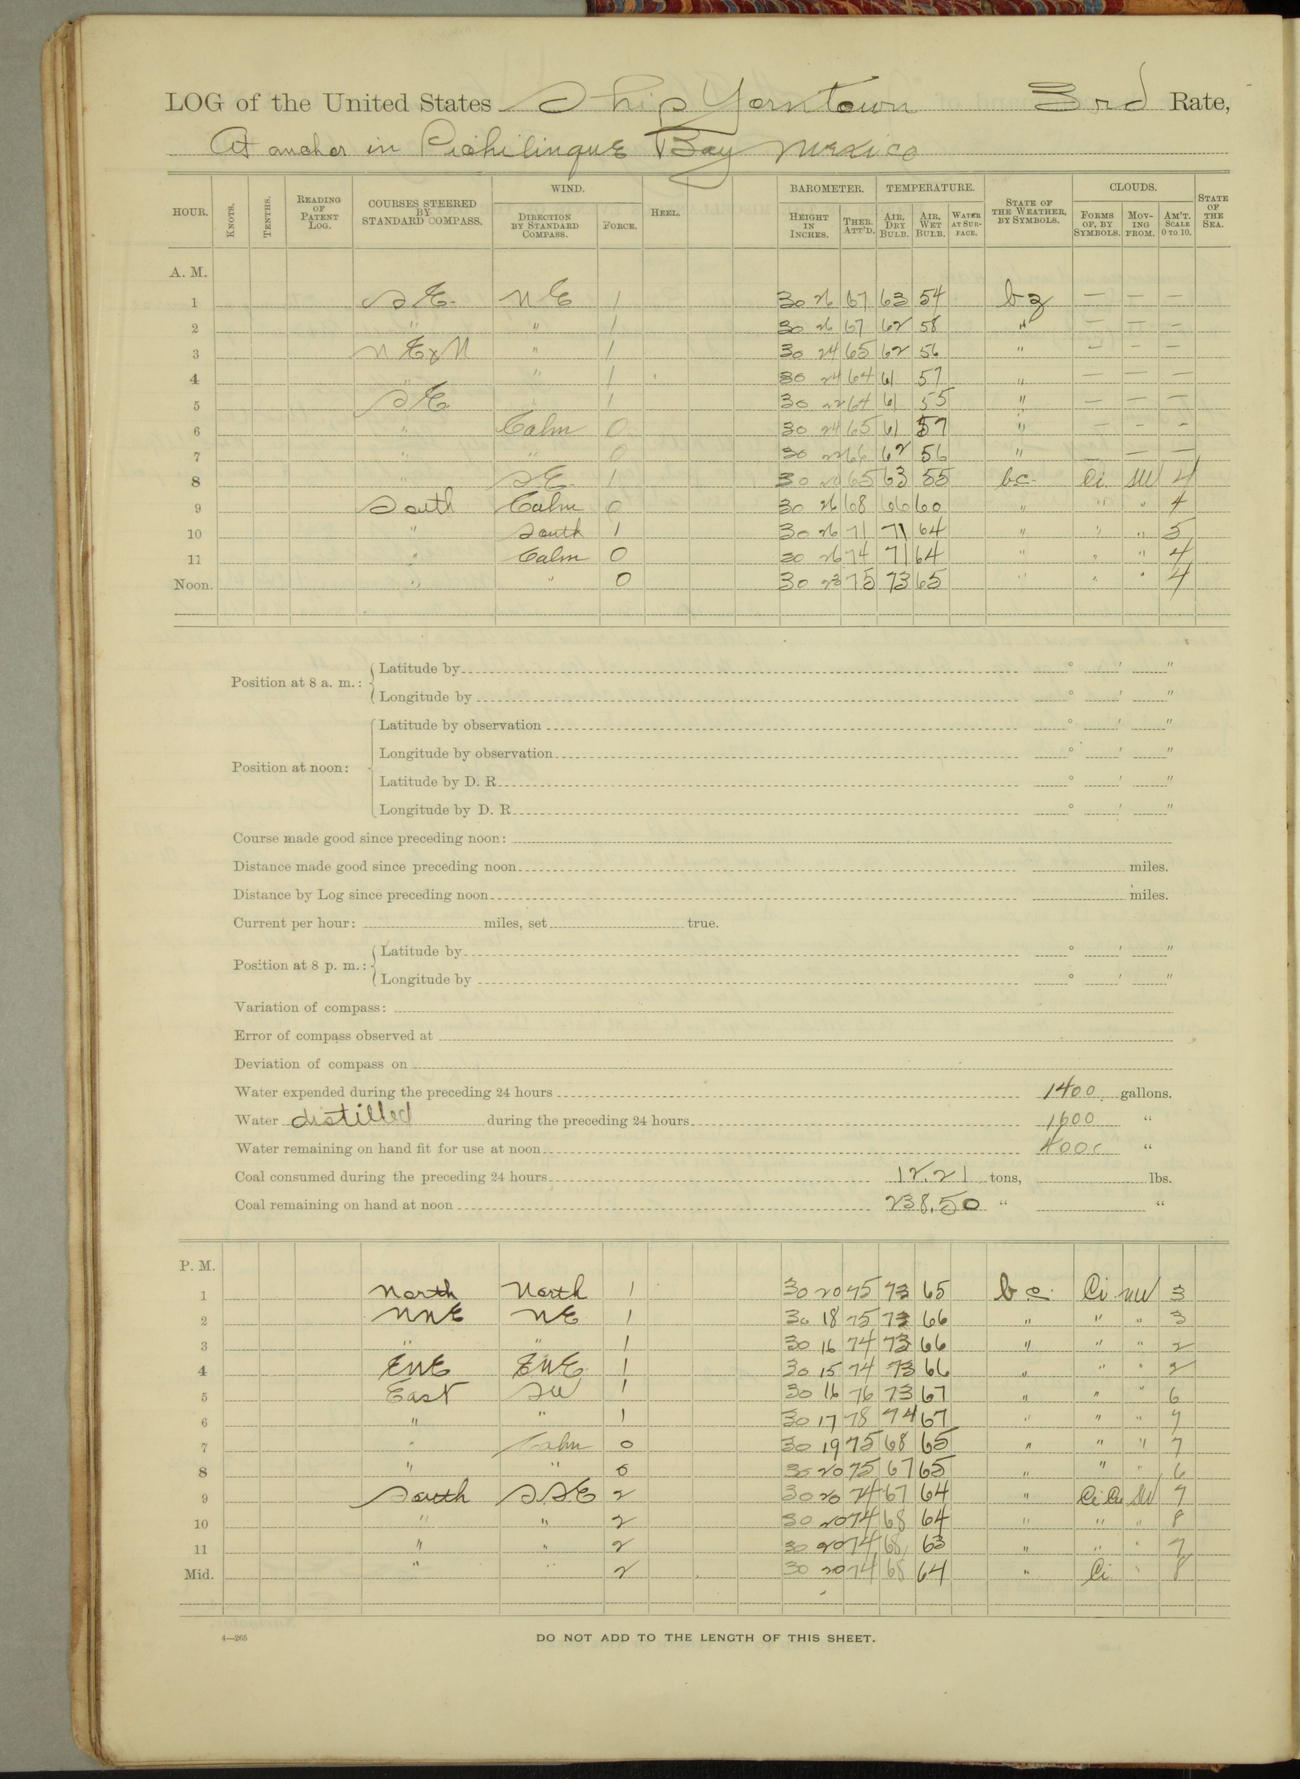 LOG of the United States Ship Yorktown 3rd Rate,
At anchor in Pichilinque Bay Mexico
HOUR. KNOTS. TENTHS. READING OF PATENT LOG. COURSES STEERED BY STANDARD COMPASS. WIND. DIRECTION BY STANDARD COMPASS. FORCE. HEEL. BAROMETER. HEIGHT IN INCHES. THER. ATT'D. TEMPERATURE. AIR, DRY BULB. AIR, WET BULB. WATER AT SURFACE. STATE OF THE WEATHER, BY SYMBOLS. CLOUDS. FORMS OF, BY SYMBOLS. MOVING FROM. AM'T. SCALE 0 TO 10. STATE OF THE SEA.
A. M.
1 SE NE 1 30 26 67 63 54 bz — — —
2 " " 1 30 26 67 62 58 " — — —
3 NExN " 1 30 24 65 62 56 " — — —
4 " " 1 30 24 64 61 57 " — — —
5 SE " 1 30 22 64 61 55 " — — —
6 " Calm 0 30 24 65 61 57 " — — —
7 " " 0 30 22 66 62 56 " — — —
8 " SE 1 30 20 65 63 55 bc Ci SW 4
9 South Calm 0 30 26 68 66 60 " " " 4
10 " South 1 30 26 71 71 64 " " " 5
11 " Calm 0 30 26 74 71 64 " " " 4
Noon. " " 0 30 23 75 73 65 " " " 4
Position at 8 a. m.: Latitude by ° ' "
Longitude by ° ' "
Position at noon: Latitude by observation ° ' "
Longitude by observation ° ' "
Latitude by D. R. ° ' "
Longitude by D. R. ° ' "
Course made good since preceding noon:
Distance made good since preceding noon miles.
Distance by Log since preceding noon miles.
Current per hour: miles, set true.
Position at 8 p. m.: Latitude by ° ' "
Longitude by ° ' "
Variation of compass:
Error of compass observed at
Deviation of compass on
Water expended during the preceding 24 hours 1400 gallons.
Water distilled during the preceding 24 hours 1600 "
Water remaining on hand fit for use at noon 4000 "
Coal consumed during the preceding 24 hours 12.21 tons, lbs.
Coal remaining on hand at noon 238.50 " "
P. M.
1 North North 1 30 20 75 73 65 bc Ci NW 3
2 NNE NE 1 30 18 75 73 66 " " " 3
3 " " 1 30 16 74 73 66 " " " 2
4 ENE ENE 1 30 15 74 73 66 " " " 2
5 East SW 1 30 16 76 73 67 " " " 6
6 " " 1 30 17 78 74 67 " " " 7
7 " Calm 0 30 19 75 68 65 " " " 7
8 " " 0 30 20 75 67 65 " " " 6
9 South SSE 2 30 20 74 67 64 " Ci Cu SW 7
10 " " 2 30 20 74 68 64 " " " 8
11 " " 2 30 20 74 68 63 " " " 7
Mid. " " 2 30 20 74 68 64 " Ci " 8
4—265
DO NOT ADD TO THE LENGTH OF THIS SHEET.